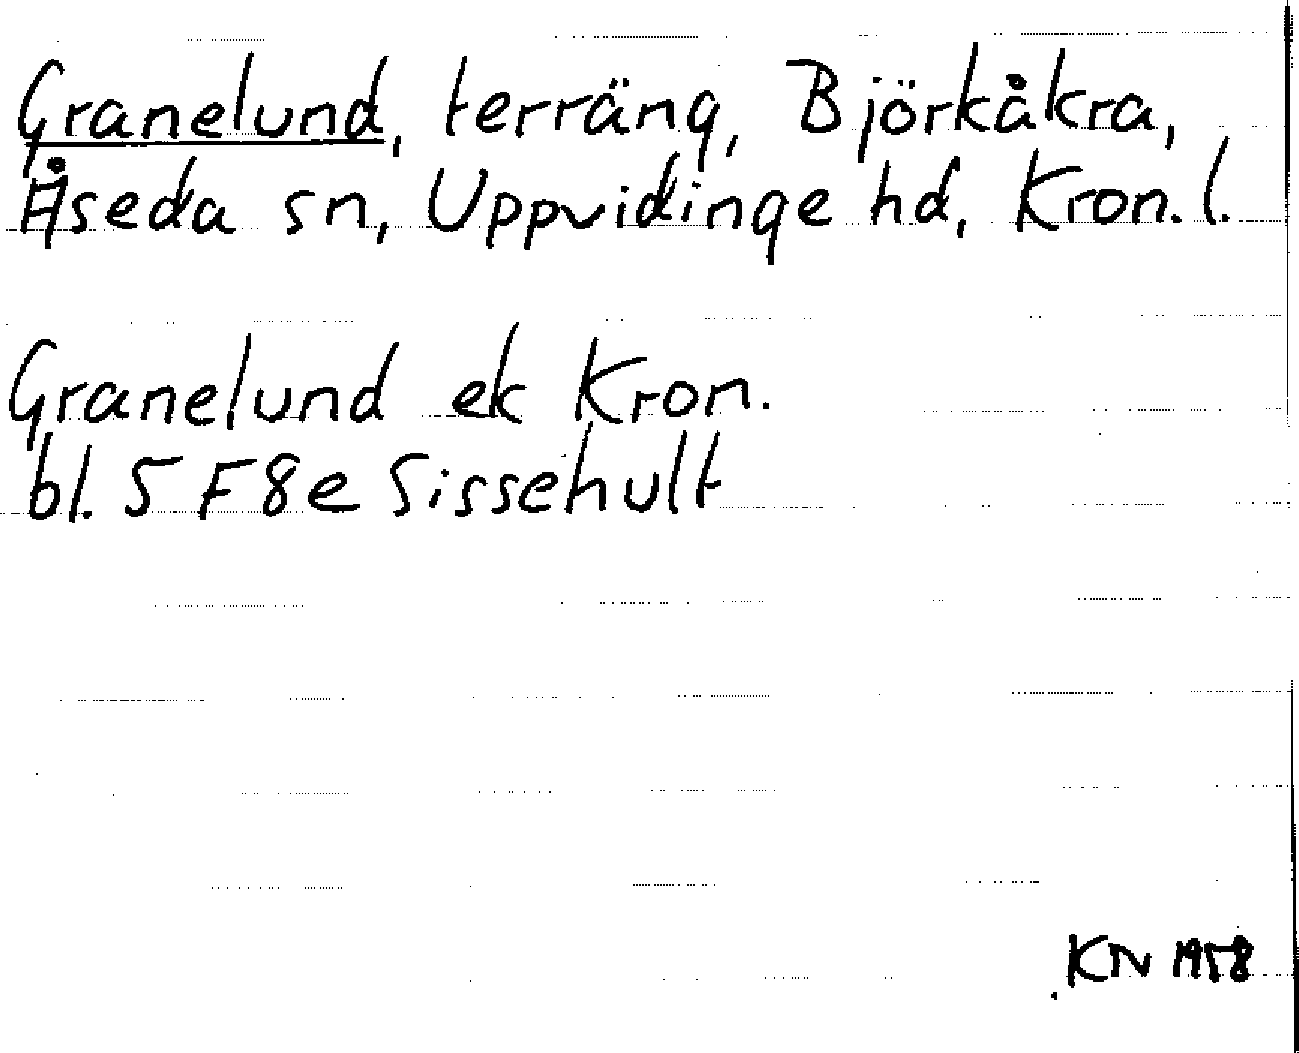 Granelund, terräng, Björkåkra,
Åseda sn, Uppvidinge hd, Kron. l.
Granelund ek Kron.
bl. 5 F 8e Sissehult
KN 1958